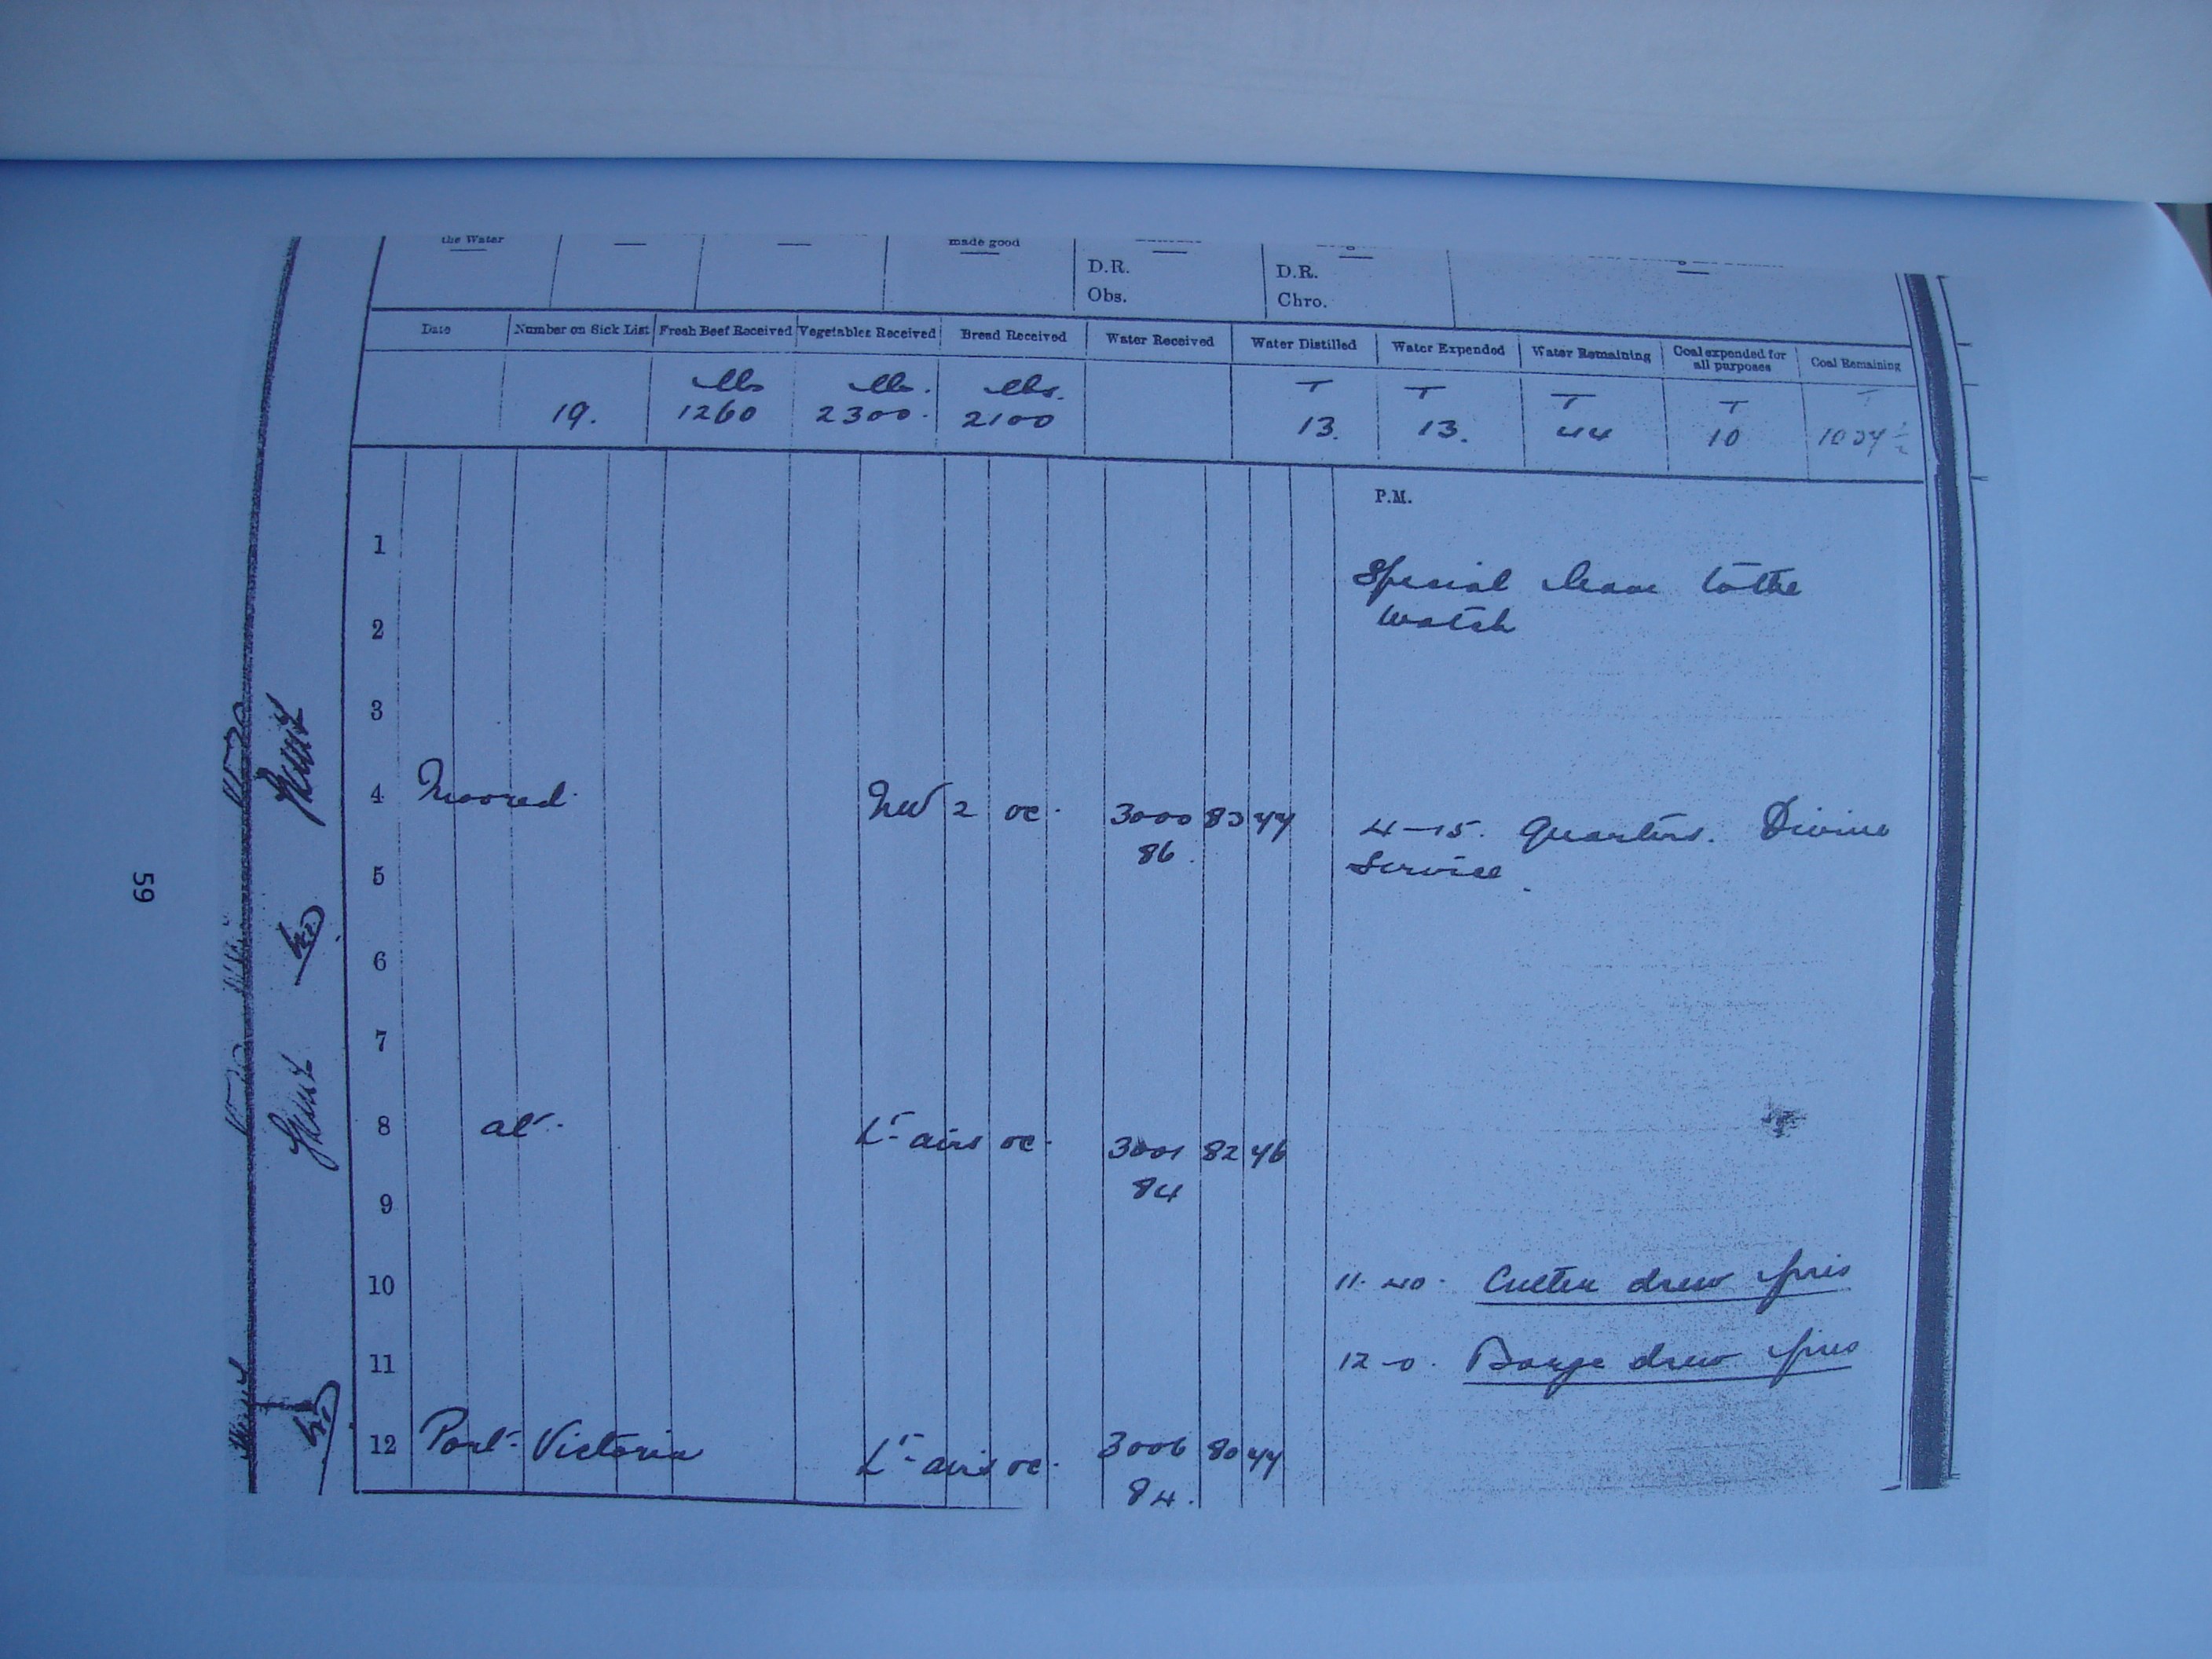 the Water
made good
D.R.
Obs.
D.R.
Chro.
Date Number on Sick List Fresh Beef Received Vegetables Received Bread Received Water Received Water Distilled Water Expended Water Remaining Coal expended for all purposes Coal Remaining
lbs lbs. lbs. T T T T T
19. 1260 2300. 2100 13. 13. 44 10
P.M.
1
Special leave to the
2 Watch
3
4 Moored. NW 2 oc. 3000 83 77 4-15. Quarters. Divine
86.
5 Service.
6
7
8 at. Lt airs oc. 3001 82 76
84
9
10 11.40. Cutter drew fires
11 12-0. Barge drew fires
12 Port Victoria Lt airs oc. 3006 80 77
84.
59